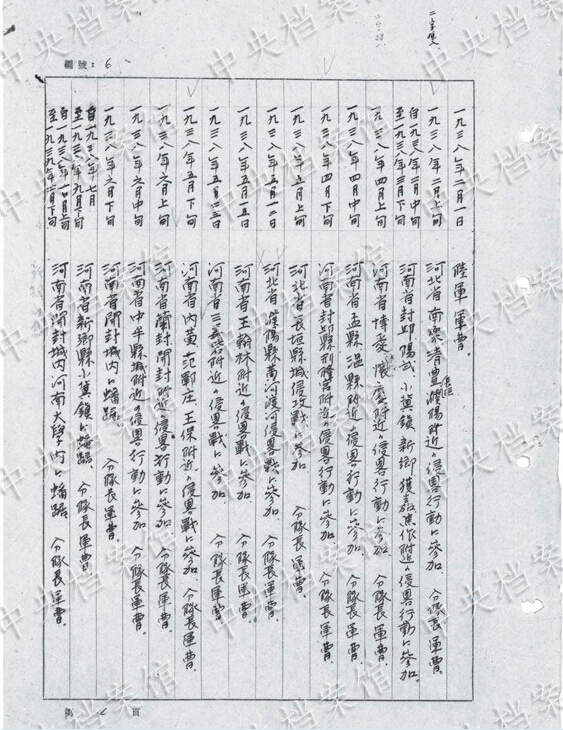 二字雙
編號：6
一九三八年二月一日 陸軍軍曹。
一九三八年二月上旬 河北省南楽清豊濮陽附近ノ侵略行動ニ参加 分隊長軍曹。
自一九三八年二月中旬至一九三八年三月下旬 河南省封邱陽武小冀鎮新郷獲嘉焦作附近ノ侵略行動ニ参加。
一九三八年四月上旬 河南省博愛懐慶附近ノ侵略行動ニ参加 分隊長軍曹。
一九三八年四月中旬 河南省孟縣温縣附近ノ侵略行動ニ参加 分隊長軍曹。
一九三八年四月下旬 河南省封邱縣附近ノ侵略行動ニ参加 分隊長軍曹。
一九三八年五月上旬 河北省長垣縣城侵攻戦ニ参加 分隊長軍曹。
一九三八年五月十二日 河北省濮陽縣黄河渡河侵略戦ニ参加 分隊長軍曹。
一九三八年五月十五日 河南省王翰林附近ノ侵略戦ニ参加 分隊長軍曹。
一九三八年五月二三日 河南省三義砦附近ノ侵略戦ニ参加 分隊長軍曹。
一九三八年五月下旬 河南省内黄范鄆庄王保附近ノ侵略戦ニ参加 分隊長軍曹。
一九三八年六月上旬 河南省蘭封開封附近ノ侵略行動ニ参加 分隊長軍曹。
一九三八年六月中旬 河南省中牟縣城附近ノ侵略行動ニ参加 分隊長軍曹。
一九三八年六月下旬 河南省開封城内ニ蟠踞 分隊長軍曹。
自一九三八年七月至一九三八年九月下旬 河南省新郷縣小冀鎮ニ蟠踞 分隊長軍曹。
自一九三八年一〇月上旬至一九三九年二月下旬 河南省開封城内河南大學内ニ蟠踞 分隊長軍曹。
第 頁
中央档案馆